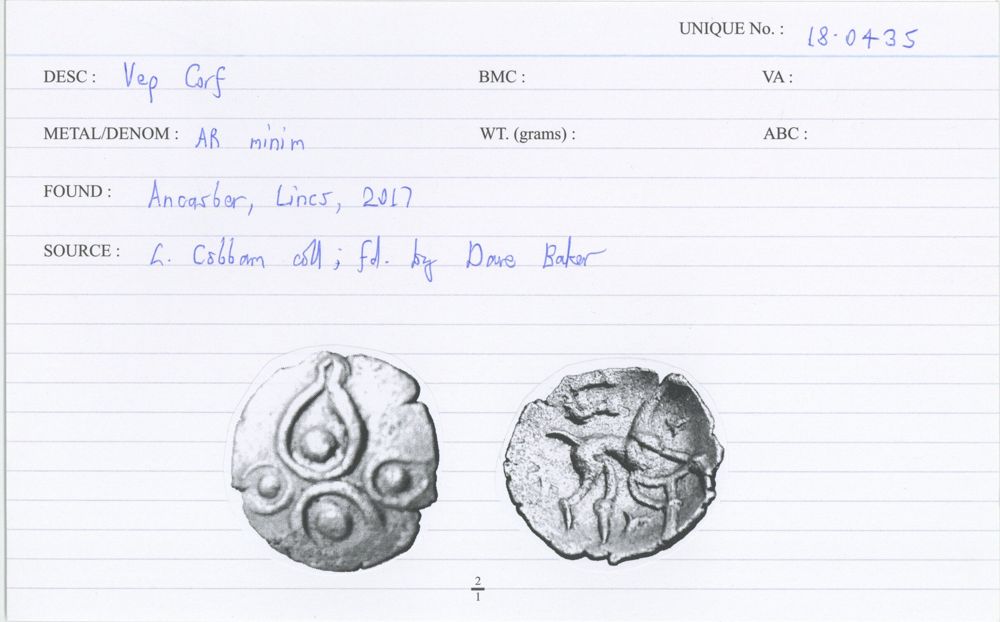 UNIQUE No. : 18.0435
DESC : Vep Corf BMC : VA :
METAL/DENOM : AR minim WT. (grams) : ABC :
FOUND : Ancaster, Lincs, 2017
SOURCE : L. Cobbam coll; fd. by Dave Baker
2
1